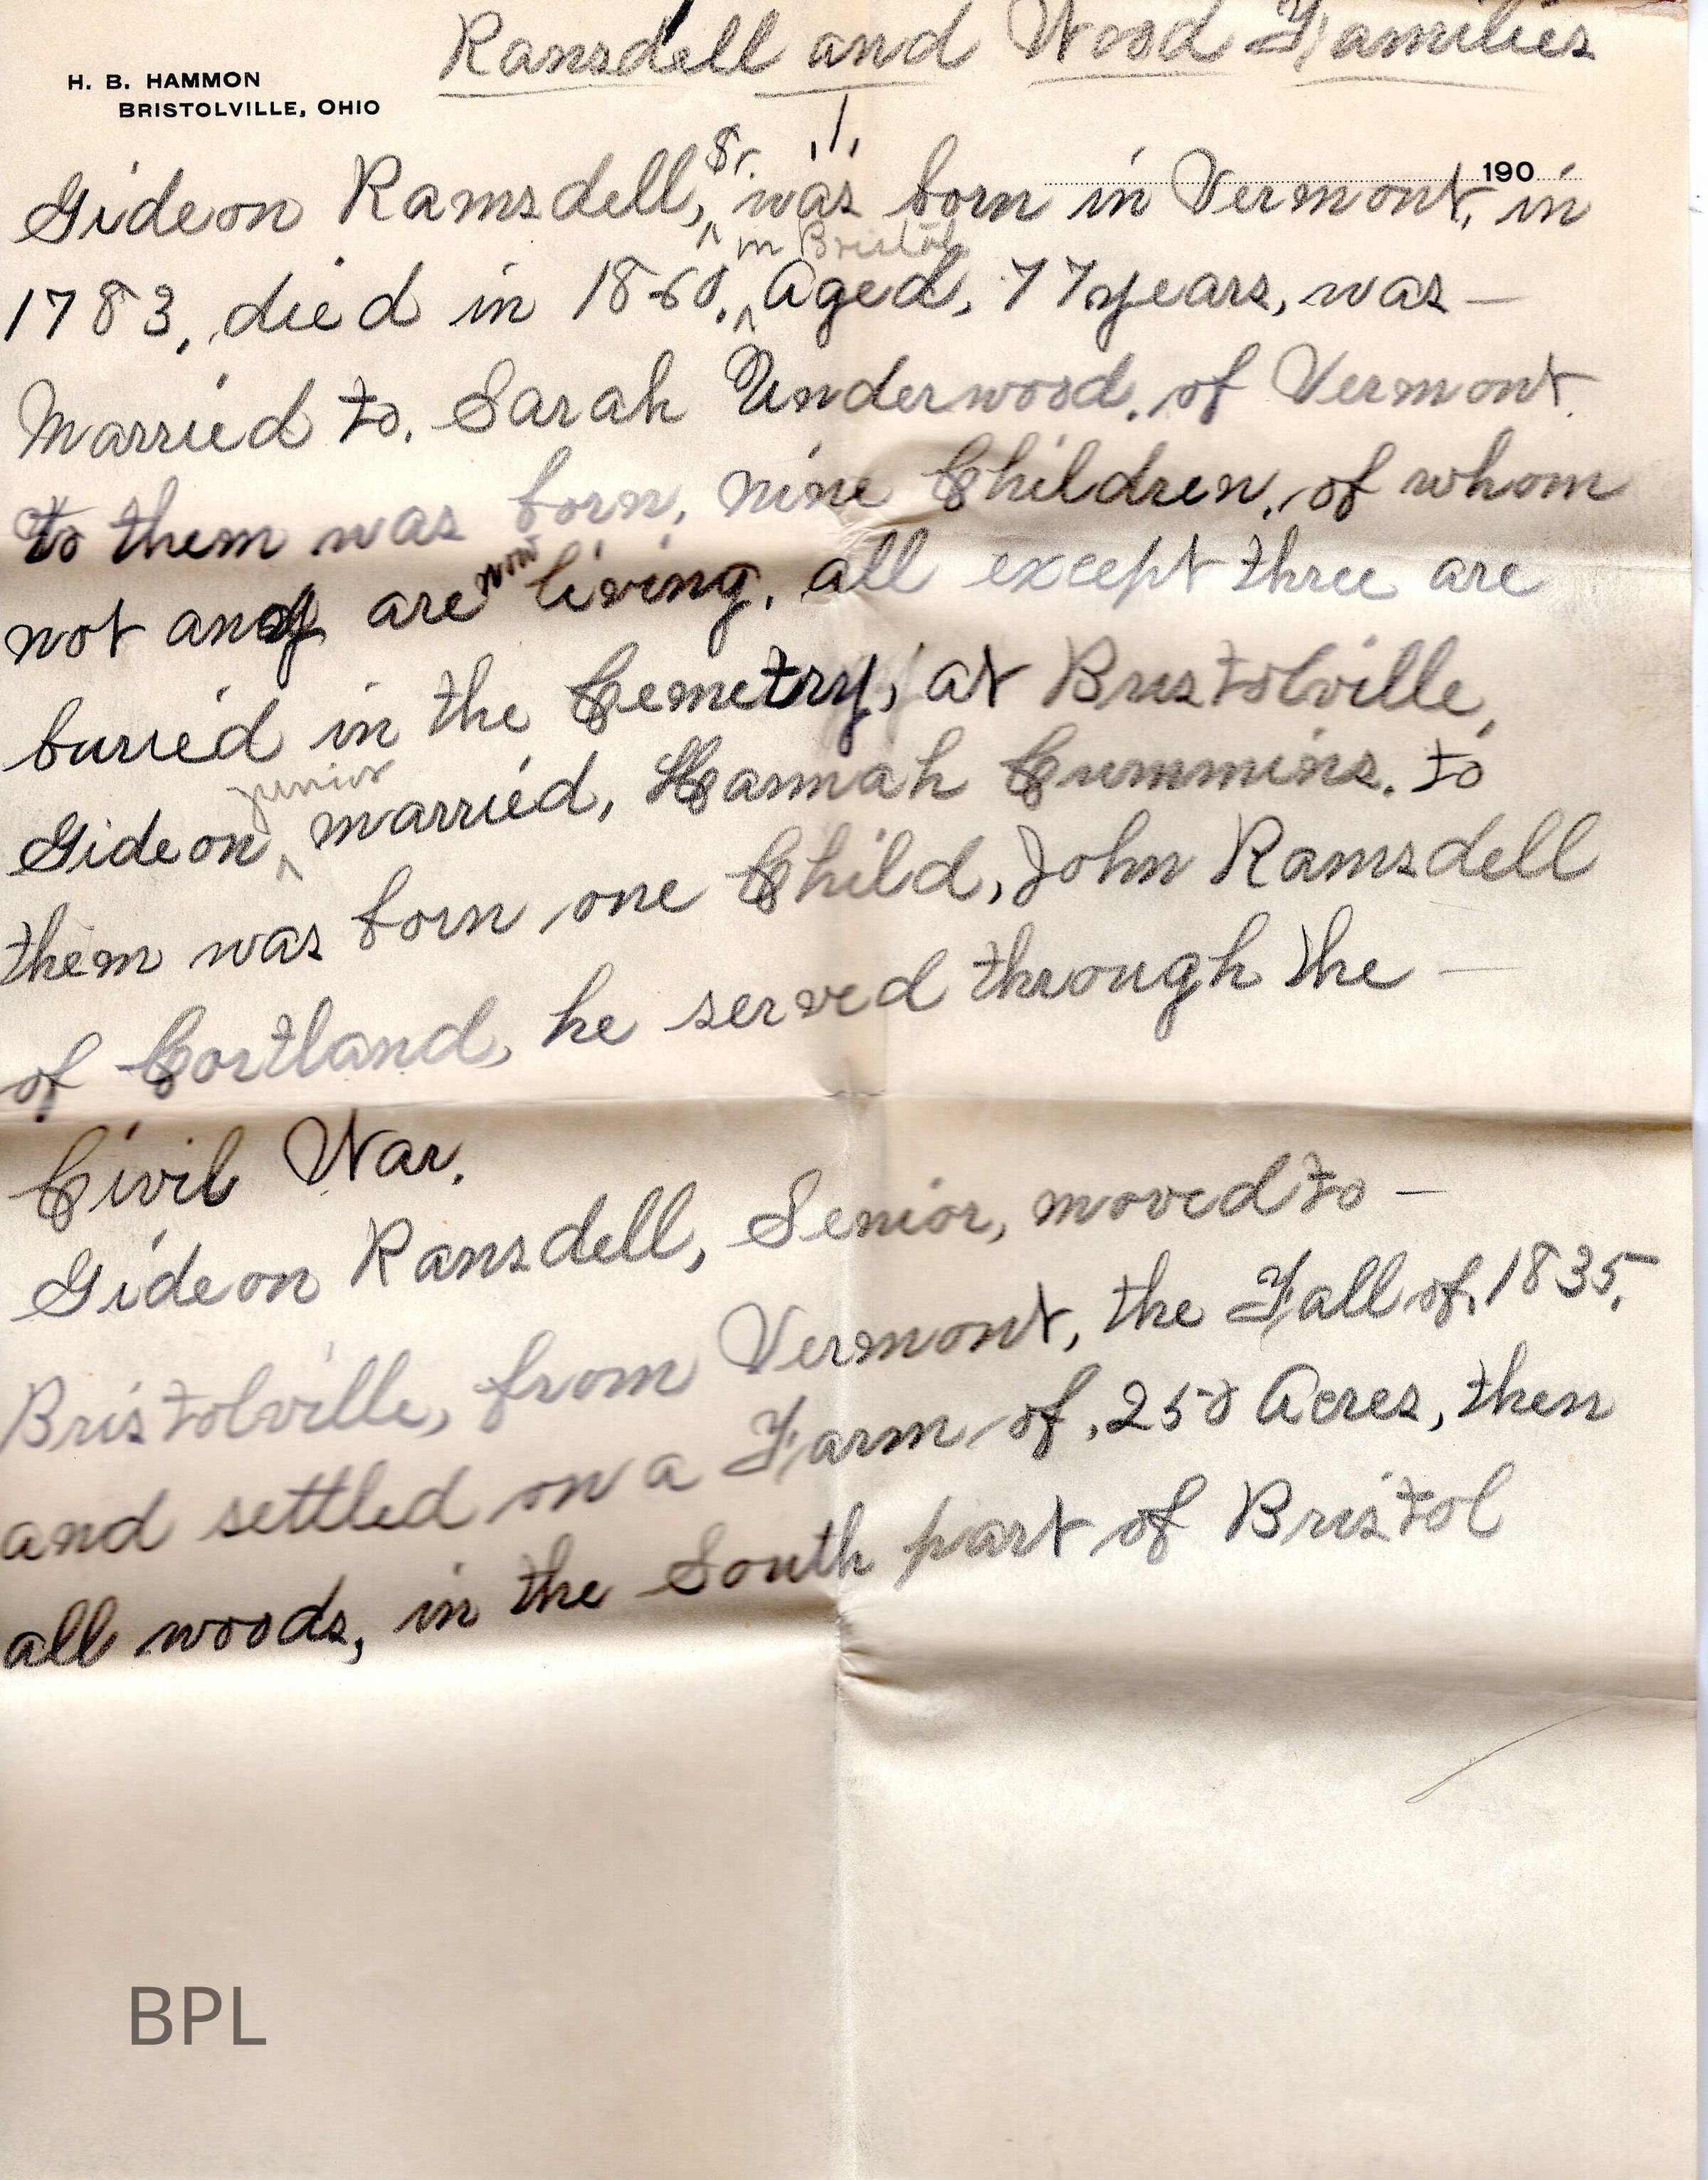 Ransdell and Wood Families
H. B. HAMMON
BRISTOLVILLE, OHIO
1.
190
Gideon Ramsdell, Sr. was born in Vermont, in
1783, died in 1860, in Bristol Aged, 77 years, was —
Married to. Sarah Underwood. of Vermont.
to them was born, nine Children, of whom
not any are now living. all except three are
buried in the Cemetry, at Bristolville,
Gideon junior married, Hannah Cummins. to
them was born one Child, John Ramsdell
of Cortland, he served through the —
Civil War.
Gideon Ransdell, Senior, moved to —
Bristolville, from Vermont, the Fall of, 1835,
and settled on a Farm of, 250 Acres, then
all woods, in the South part of Bristol
BPL